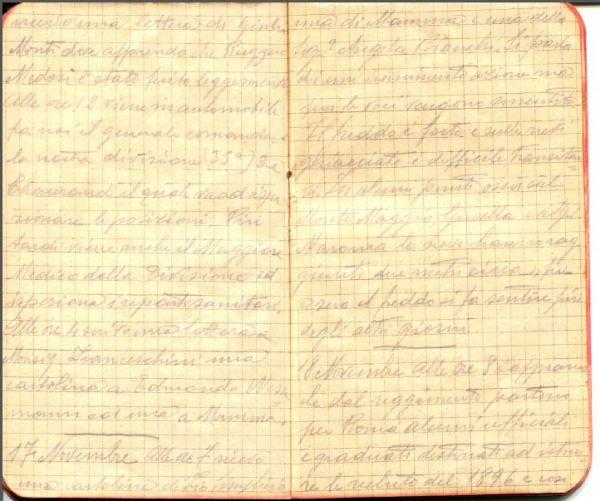 lettera di Giulio
Monti dove apprendo che Ruggero
Medori è stato ferito leggermente
Alle ore 12 viene in automobile
da noi il generale comandan
la nostra divisione (35ª) De
Chaurand il quale va ad ispe
zionare le posizioni. Più
tardi viene anche il Maggiore
Medico della Divisione ed
ispeziona i reparti sanitari.
Alle ore 4 scrivo una lettera a
Monsig. Franceschini una
cartolina a Edmondo
ed una a Mamma.
17 Novembre Alle ore 7 ricevo
una cartolina di Zio
una di Mamma e una della
Sig.ª Angela Si parla
di un imminente azione ma
poi le voci vengono smentite
Il freddo è forte e sulle
ghiacciate è difficile transitar
vi. In alcuni punti ossia sul
Monte Maggio e all'
Maronia le nevi hanno rag
giunto due metri circa.
sera il freddo si fa sentire più
degli altri giorni
18 Novembre Alle ore 8 si apprende
che dal reggimento partono
per Roma alcuni ufficiali
e graduati destinati ad istrui
re le reclute del 1896 e così